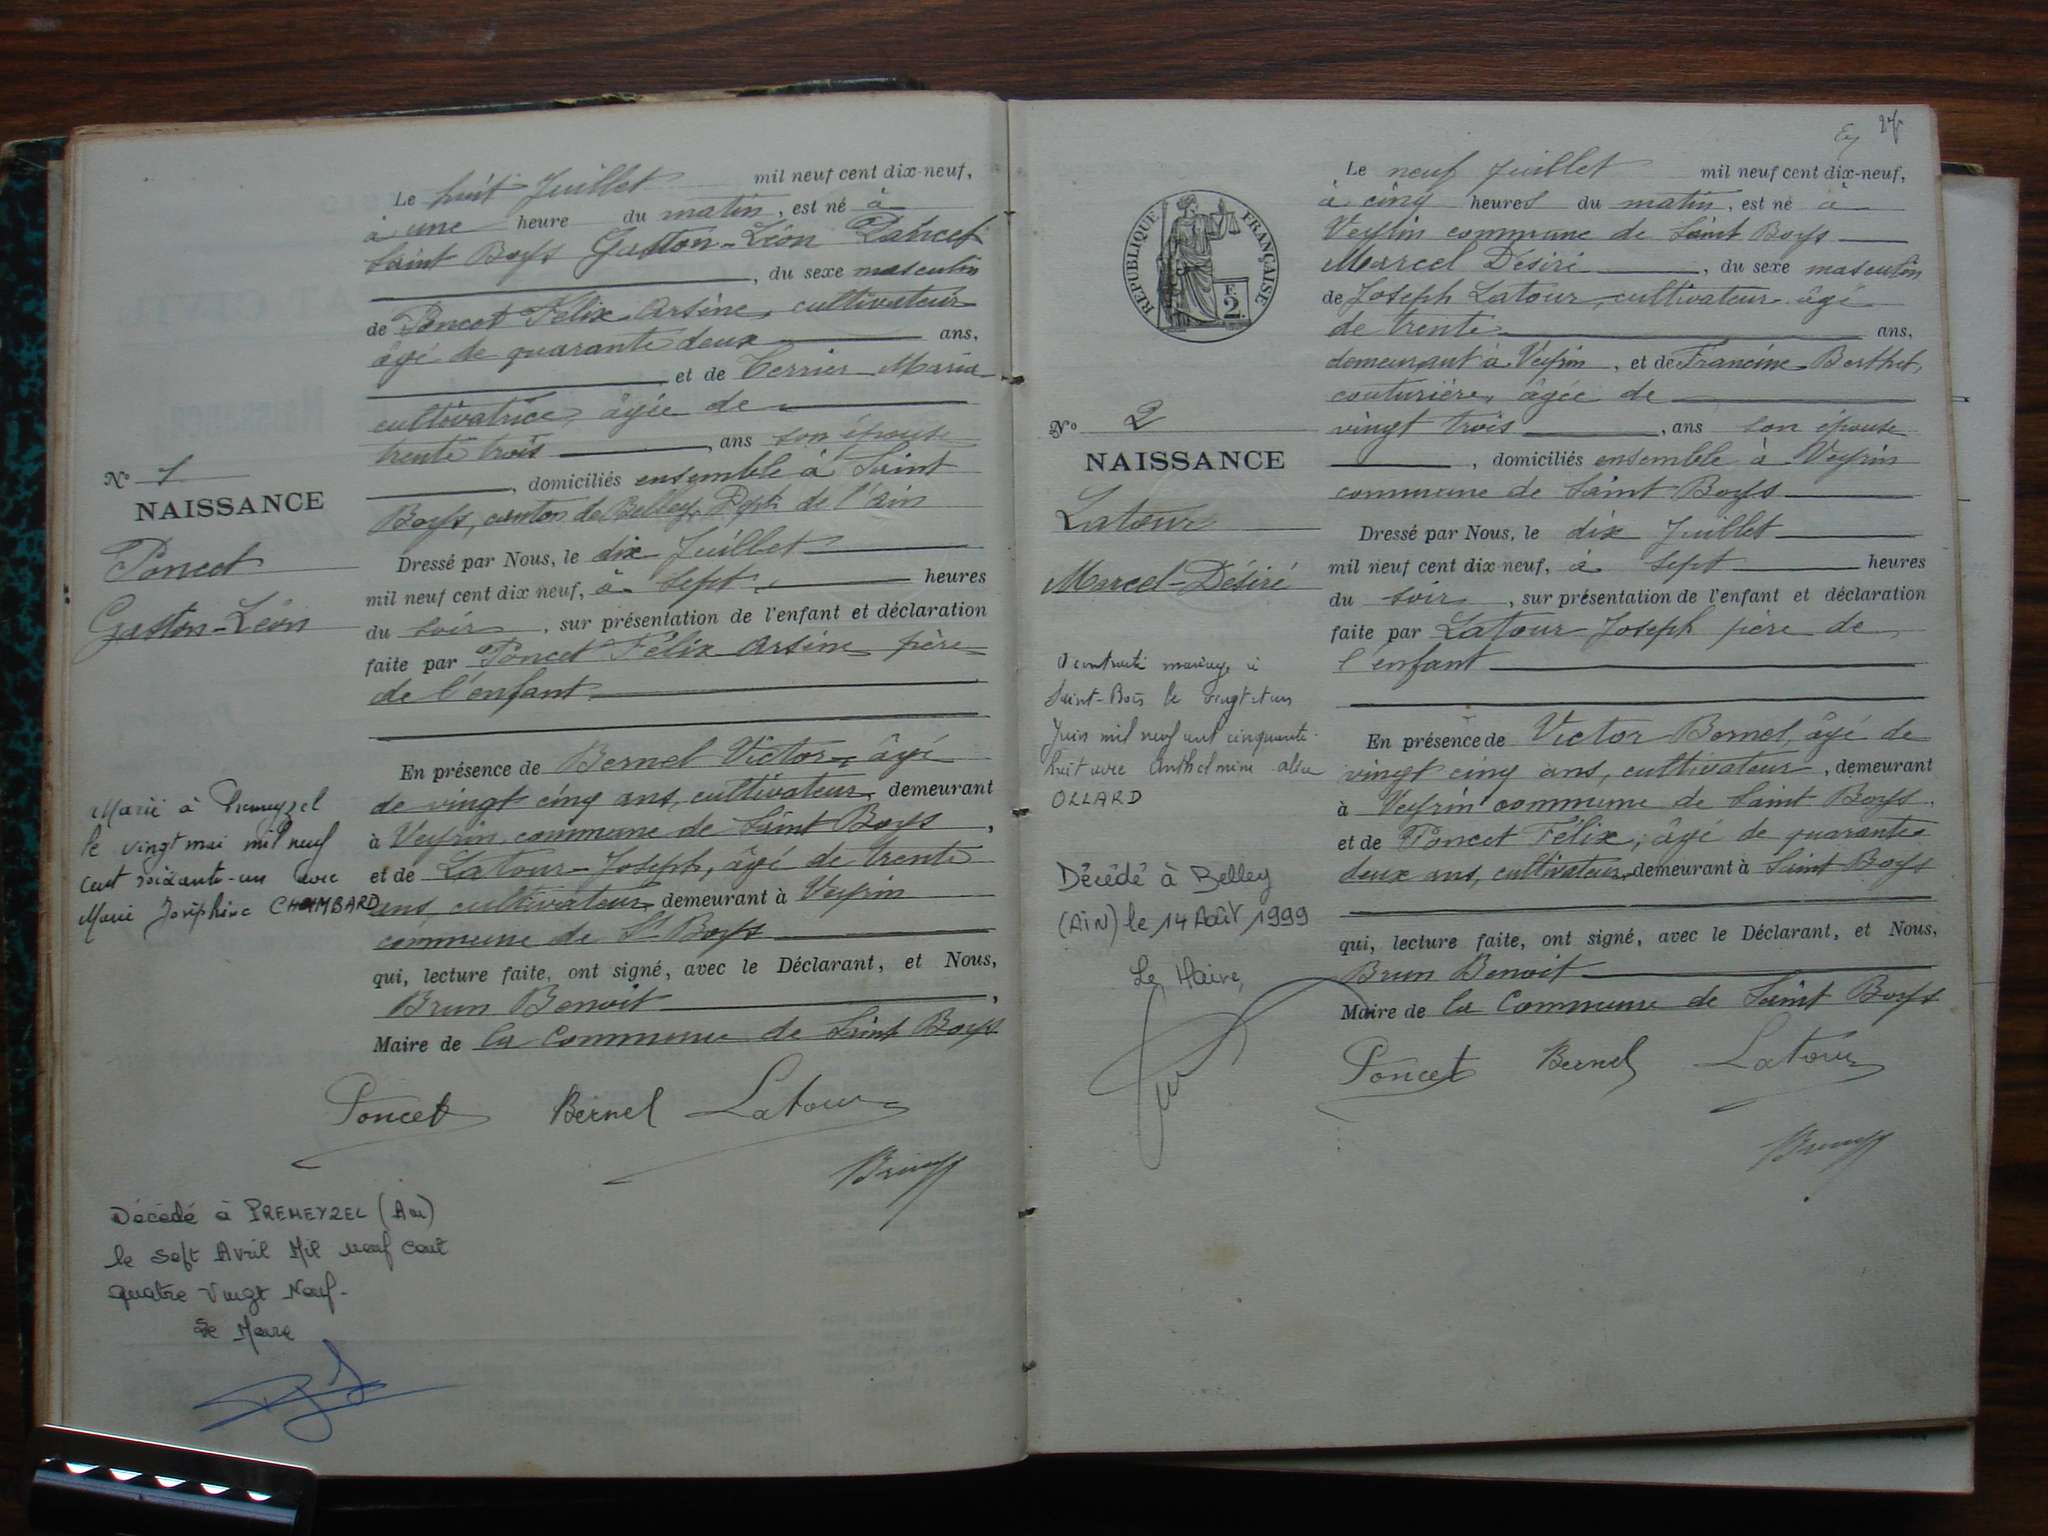 Le huit Juillet mil neuf cent dix-neuf,
à une heure du matin, est né à
Saint Boys Gaston-Léon Poncet
, du sexe masculin
de Poncet Félix Arsène, cultivateur
âgé de quarante deux ans,
et de Terrier Maria
cultivatrice, âgée de
trente trois, ans son épouse
, domiciliés ensemble à Saint
Boys, canton de Belley, Dept de l'Ain
Dressé par Nous, le dix Juillet
mil neuf cent dix neuf, à sept heures
du soir, sur présentation de l'enfant et déclaration
faite par Poncet Félix Arsène père
de l'enfant
En présence de Bernel Victor, âgé
de vingt cinq ans, cultivateur, demeurant
à Veyrin, commune de Saint Boys,
et de Latour-Joseph, âgé de trente
ans, cultivateur, demeurant à Veyrin
commune de St Boys
qui, lecture faite, ont signé, avec le Déclarant, et Nous,
Brun Benoit,
Maire de la Commune de Saint Boys
Poncet Bernel Latour
Brun
No 1
NAISSANCE
Poncet
Gaston-Léon
Marié à Premeyzel
le vingt mai mil neuf
cent soixante-un avec
Marie Joséphine CHAMBARD
Décédé à PREMEYZEL (Ain)
le sept Avril Mil neuf cent
quatre Vingt Neuf-
Le Maire
RÉPUBLIQUE FRANÇAISE
F.
2.
No 2
NAISSANCE
Latour
Marcel-Désiré
A contracté mariage à
Saint-Bois le vingt et un
Juin mil neuf cent cinquante-
huit avec Anthelmine
OLLARD
Décédé à Belley
(AiN) le 14 Août 1999
Le Maire,
Le neuf Juillet mil neuf cent dix-neuf,
à cinq heures du matin, est né à
Veyrin commune de Saint Boys
Marcel Désiré, du sexe masculin
de Joseph Latour, cultivateur âgé
de trente ans,
demeurant à Veyrin, et de Francine Berthet,
couturière, âgée de
vingt trois, ans son épouse
, domiciliés ensemble à Veyrin
commune de Saint Boys
Dressé par Nous, le dix Juillet
mil neuf cent dix neuf, à sept heures
du soir, sur présentation de l'enfant et déclaration
faite par Latour Joseph père de
l'enfant
En présence de Victor Bernel, âgé de
vingt cinq ans, cultivateur, demeurant
à Veyrin commune de Saint Boys,
et de Poncet Félix, âgé de quarante
deux ans, cultivateur, demeurant à Saint Boys
qui, lecture faite, ont signé, avec le Déclarant, et Nous,
Brun Benoit
Maire de la Commune de Saint Boys
Poncet Bernel Latour
Brun